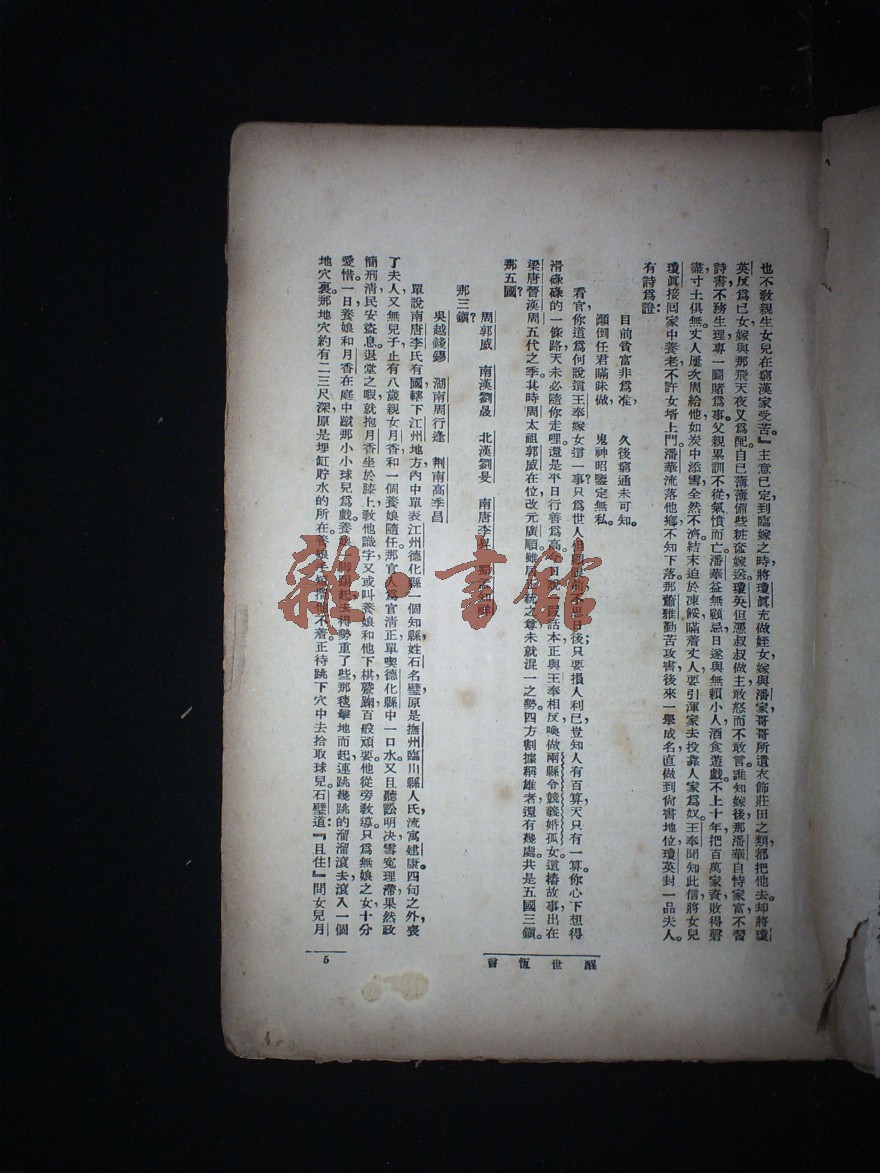 也不教親生女兒在窮漢家受苦。』主意已定到臨嫁之時，將瓊眞充做姪女嫁與潘家哥哥所遺衣飾莊田之類，都把他去。却將瓊
英反爲己女嫁與那飛天夜叉爲配。自己薄薄備些粧奩嫁送瓊英但憑叔叔做主，敢怒而不敢言。誰知嫁後，那潘華自恃家富，不習
詩書，不務生理，專一闞賭爲事。父親累訓不從氣憤而亡。潘華益無顧忌日遂與無賴小人酒食遊戲。不上十年，把百萬家賫敗得罄
盡寸土俱無。丈人屢次周給他，如炭中添雪全然不濟。結末迫於凍餒瞞着丈人要引渾家去投靠人家爲奴。王奉聞知此信，將女兒
瓊眞接回家中養老不許女壻上門。潘華流落他鄉，不知下落。那蕭雅勤苦攻書，後來一舉成名，直做到尙書地位，瓊英封一品夫人。
有詩爲證：
目前貧富非爲准，　久後窮通未可知。
顚倒任君瞞昧做，　鬼神昭鑒定無私。
看官，你道爲何說這王奉嫁女這一事？只爲世人但顧眼前不思日後；只要損人利己豈知人有百算，天只有一算。你心下想得
滑碌碌的一條路，天未必隨你走哩。還是平日行善爲高。今日說一段話本，正與王奉相反，喚做兩縣令競義婚孤女。這樁故事出在
梁唐晉漢周五代之季。其時周太祖郭威在位，改元廣順。雖居正統之尊未就混一之勢。四方割據稱雄者還有幾處，共是五國三鎭。
那五國？
周郭威　南漢劉晟　北漢劉旻　南唐李昪　蜀孟知祥
那三鎭？
吳越錢鏐　湖南周行逢　荆南高季昌
單說南唐李氏有國，轄下江州地方。內中單表江州德化縣一個知縣，姓石名璧，原是撫州臨川縣人氏，流寓建康。四旬之外，喪
了夫人，又無兒子，止有八歲親女月香和一個養娘隨任。那官人爲官清正，單喫德化縣中一口水。又且聽訟明決，雪寃理滯，果然政
簡刑清，民安盜息。退堂之暇，就抱月香坐於膝上，敎他識字，又或叫養娘和他下棋蹴踘，百般頑耍。他從旁敎導。只爲無娘之女十分
愛惜。一日，養娘和月香在庭中蹴那小小球兒爲戲。養娘一脚踢起，去得勢重了些，那毬擊地而起，連跳幾跳的溜溜滾去，滾入一個
地穴裏。那地穴約有二三尺深，原是埋缸貯水的所在。養娘手短攪他不着，正待跳下穴中去拾取球兒。石璧道：『且住！』問女兒月
醒世恆言
5
雜·書館